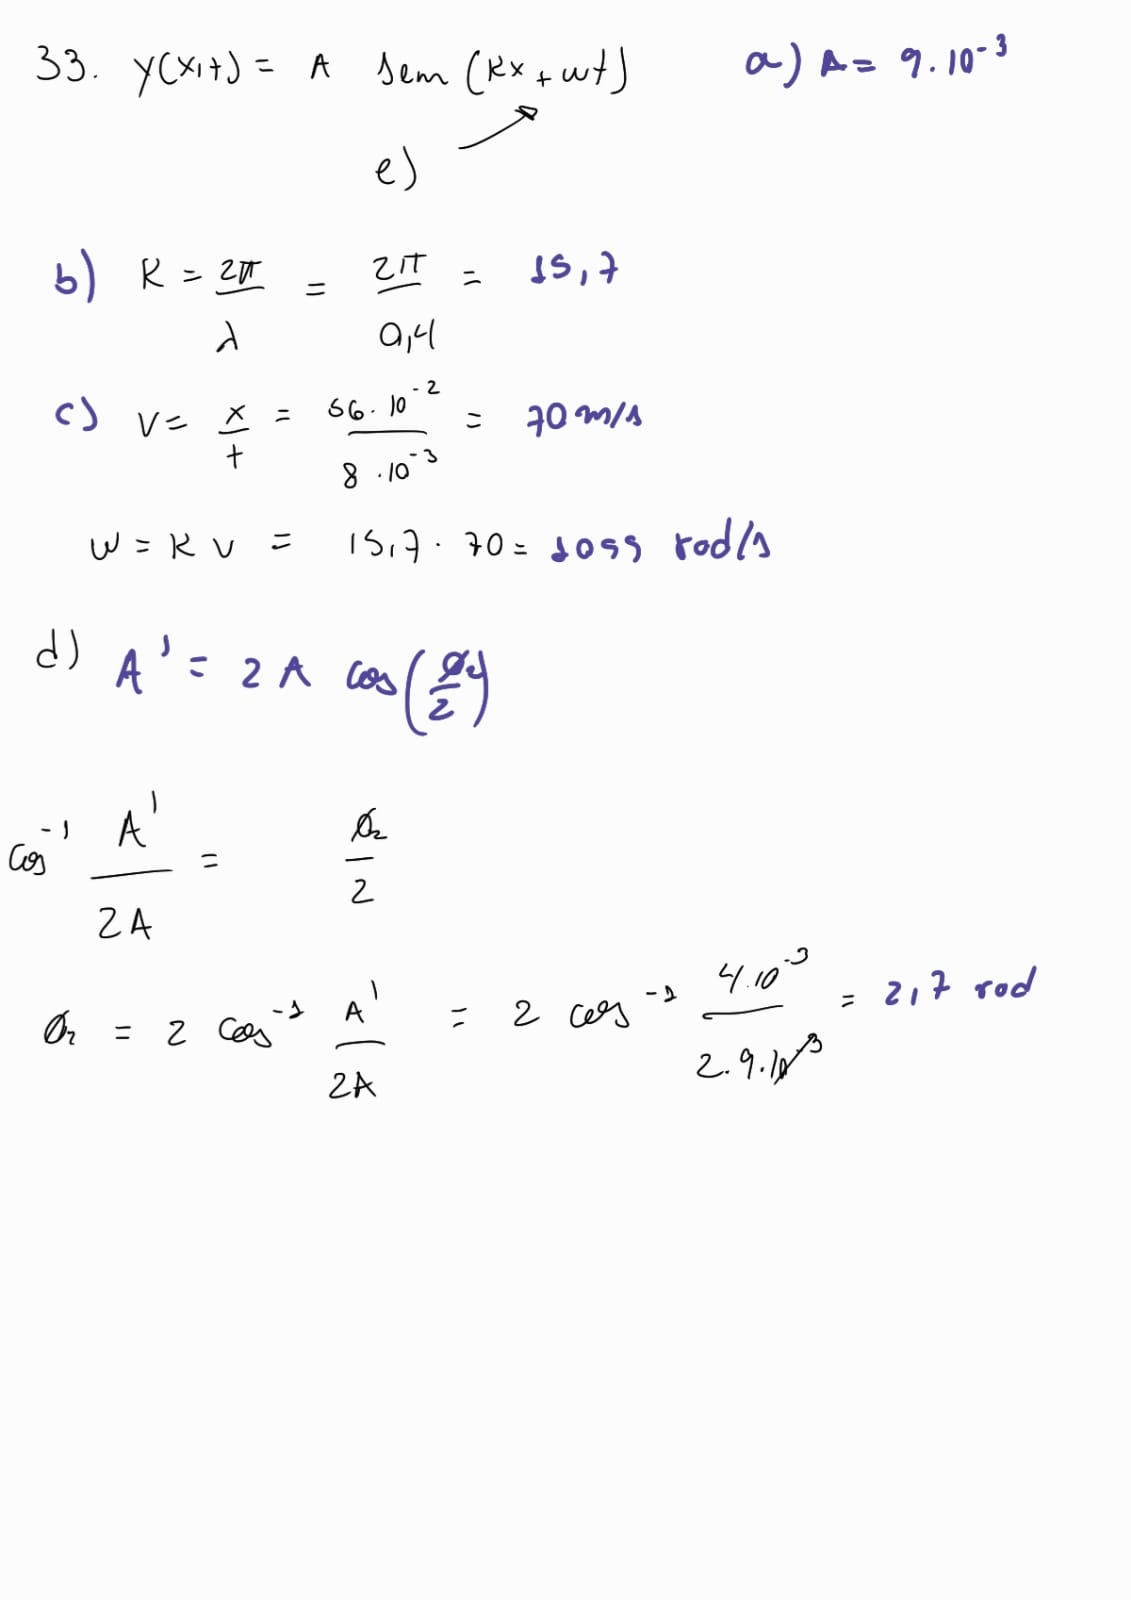 33. y(x,t) = A sem (Kx + wt) a) A = 9.10⁻³
e)
b) K = 2π/λ = 2π/0,4 = 15,7
c) V = x/t = 56.10⁻²/8.10⁻³ = 70 m/s
w = K v = 15,7 . 70 = 1099 rad/s
d) A' = 2 A cos(Ø₂/2)
cos⁻¹ A'/2A = Ø₂/2
Ø₂ = 2 cos⁻¹ A'/2A = 2 cos⁻¹ 4.10⁻³/2.9.10⁻³ = 2,7 rad